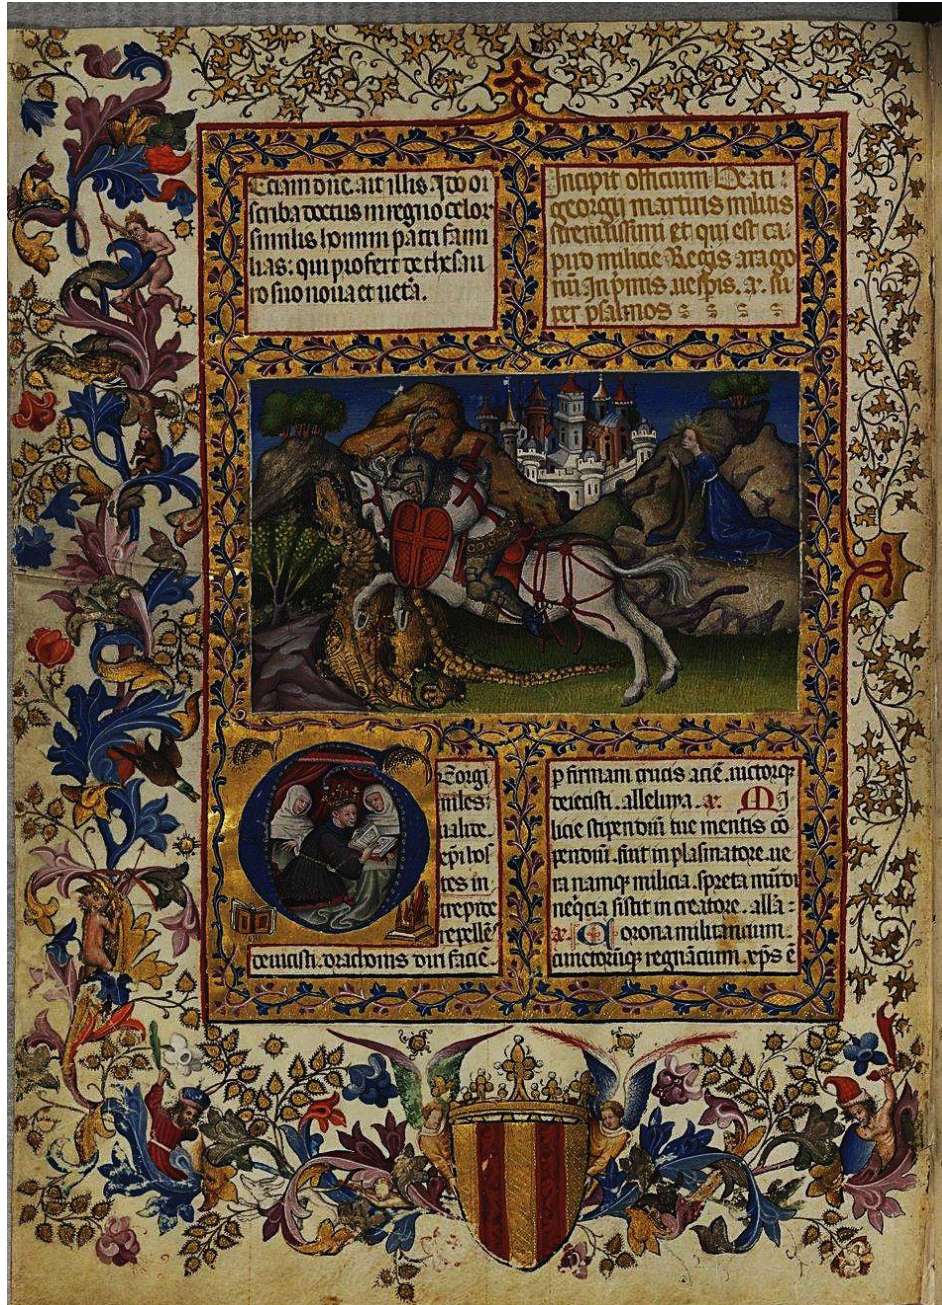 Etiam dñe. ait illis. Ido oı
scriba doctus in regno celor
similis homini patri fami
lias: qui profert de thesau
ro suo noua et ueta.
Incipit officium Beati :
georgij martiris militis
strenuissimi et qui est ca:
pud milicie Regis arago
nū In primis uespis. a. su
per psalmos
Georgi
miles
hos
tes in
trepide
repellē
deuicisti. drachonis diri facie.
p firmam crucis acie. uictorq
deiecisti. alleluya. a. Mi
licie stipendiū tue mentis cō
pendiū. fiut in plasmatore. ue
ra namq milicia. spreta mūdi
neqcia sistit in creatore. alla:
a. Corona militancium.
cunctorūq regnācium. xps ē